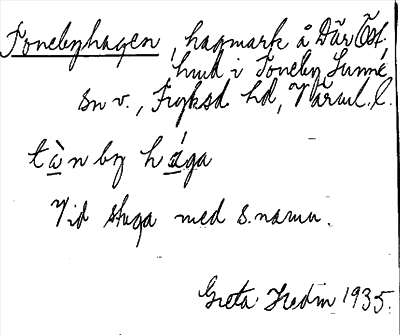 Tonebyhagen, hagmark å Där Öst,
hmd i Toneby, Sunne,
sn v., Fryksd. hd, Värml. l.
tà̱n by há̱ga
Vid stuga med s. namn.
Greta Hedin 1935.